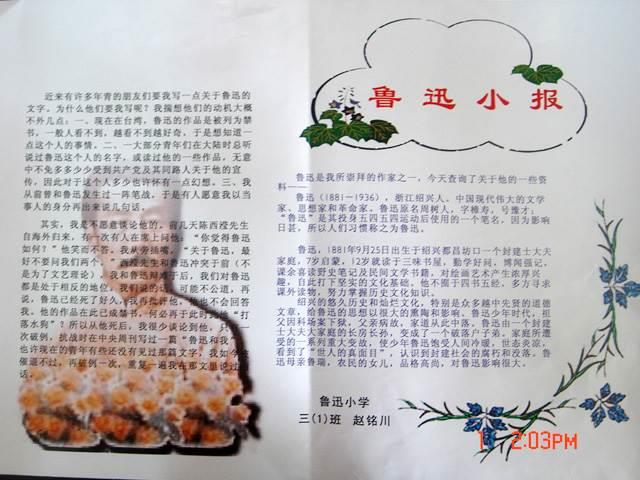 近来有许多年青的朋友们要我写一点关于鲁迅的
文字。为什么他们要我写呢？我揣想他们的动机大概
不外几点：一、现在在台湾，鲁迅的作品是被列为禁
书，一般人看不到，越看不到越好奇，于是想知道一
点这个人的事情。二、一大部分青年们在大陆时总听
说过鲁迅这个人的名字，或读过他的一些作品，无意
中不免多多少少受到共产党及其同路人关于他的宣
传，因此对于这个人多少也许怀有一点幻想。三、我
从前曾和鲁迅发生过一阵笔战，于是有人愿意我以当
事人的身分再出来说几句话。
其实，我是不愿意谈论他的。前几天陈西滢先生
自海外归来，有一次有人在席上问他：“你觉得鲁迅
如何？”他笑而不答。我从旁插嘴，“关于鲁迅，最
好不要问我们两个。”西滢先生和鲁迅冲突于前（不
是为了文艺理论），我和鲁迅辩难于后，我们对鲁迅
都是处于相反的地位。我们说的话，可能不公道，再
说，鲁迅已经死了好久，我再批评他，他也不会回答
我。他的作品在此已成禁书，何必再于此时此地“打
落水狗”？所以从他死后，我很少谈论到他，只有一
次破例，抗战时在中央周刊写过一篇“鲁迅和我”。
也许现在的青年有些还没有见过那篇文字，我如今被
催逼不过，再破例一次，重复一遍我在那文里说过的
话。
鲁迅小报
鲁迅是我所崇拜的作家之一，今天查询了关于他的一些资
料——
鲁迅（1881－1936），浙江绍兴人。中国现代伟大的文学
家、思想家和革命家。鲁迅原名周树人，字樟寿，号豫才，
“鲁迅”是其投身五四五四运动后使用的一个笔名，因为影响
日甚，所以人们习惯称之为鲁迅。
鲁迅，1881年9月25日出生于绍兴都昌坊口一个封建士大夫
家庭，7岁启蒙，12岁就读于三味书屋，勤学好问，博闻强记，
课余喜读野史笔记及民间文学书籍，对绘画艺术产生浓厚兴
趣，自此打下坚实的文化基础。他不囿于四书五经，多方寻求
课外读物，努力掌握历史文化知识。
绍兴的悠久历史和灿烂文化，特别是众多越中先贤的道德
文章，给鲁迅的思想以很大的熏陶和影响。鲁迅少年时代，祖
父因科场案下狱，父亲病故，家道从此中落。鲁迅由一个封建
士大夫大家庭的长房长孙，变成了一个破落户子弟，家庭所遭
受的一系列重大变故，使少年鲁迅饱受人间冷暖，世态炎凉，
看到了“世人的真面目”，认识到封建社会的腐朽和没落。鲁
迅母亲鲁瑞，农民的女儿，品格高尚，对鲁迅影响很大。
鲁迅小学
三(1)班 赵铭川
2:03PM